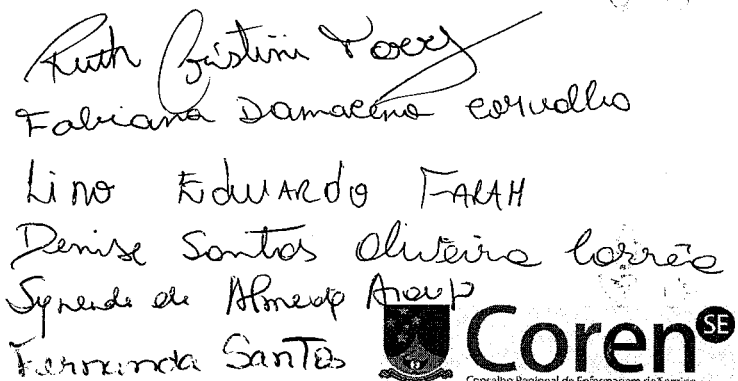 Ruth Cristini
Fabiana Damaceno Carvalho
Lino Eduardo FARAH
Denise Santos Oliveira Corrêa
de Almeida Araujo
Fernanda Santos
Coren SE
Conselho Regional de Enfermagem de Sergipe